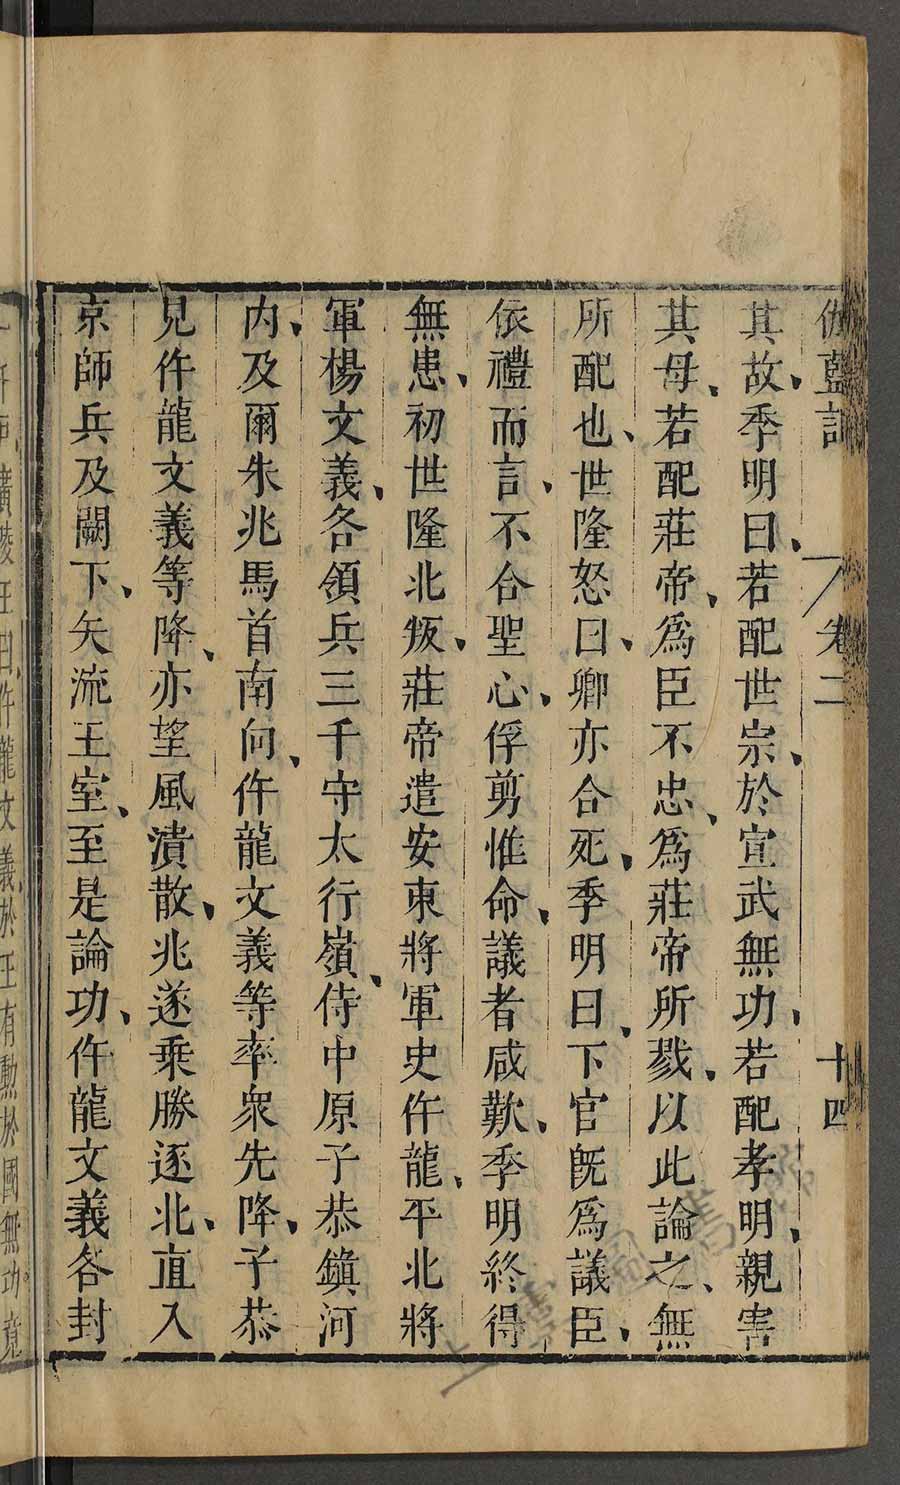 伽藍記 卷二 十四
其故、季明曰、若配世宗、於宣武無功、若配孝明、親害
其母、若配莊帝、爲臣不忠、爲莊帝所戮、以此論之、無
所配也、世隆怒曰、卿亦合死、季明曰、下官旣爲議臣、
依禮而言、不合聖心、俘剪惟命、議者咸歎、季明終得
無患、初世隆北叛、莊帝遣安東將軍史仵龍、平北將
軍楊文義、各領兵三千守太行嶺、侍中原子恭鎮河
內、及爾朱兆馬首南向、仵龍文義等率衆先降、子恭
見仵龍文義等降、亦望風潰散、兆遂乗勝逐北、直入
京師兵及闕下、矢流王室、至是論功、仵龍文義各封
廣陵王曰、仵龍文義、於王有勳於國無功竟